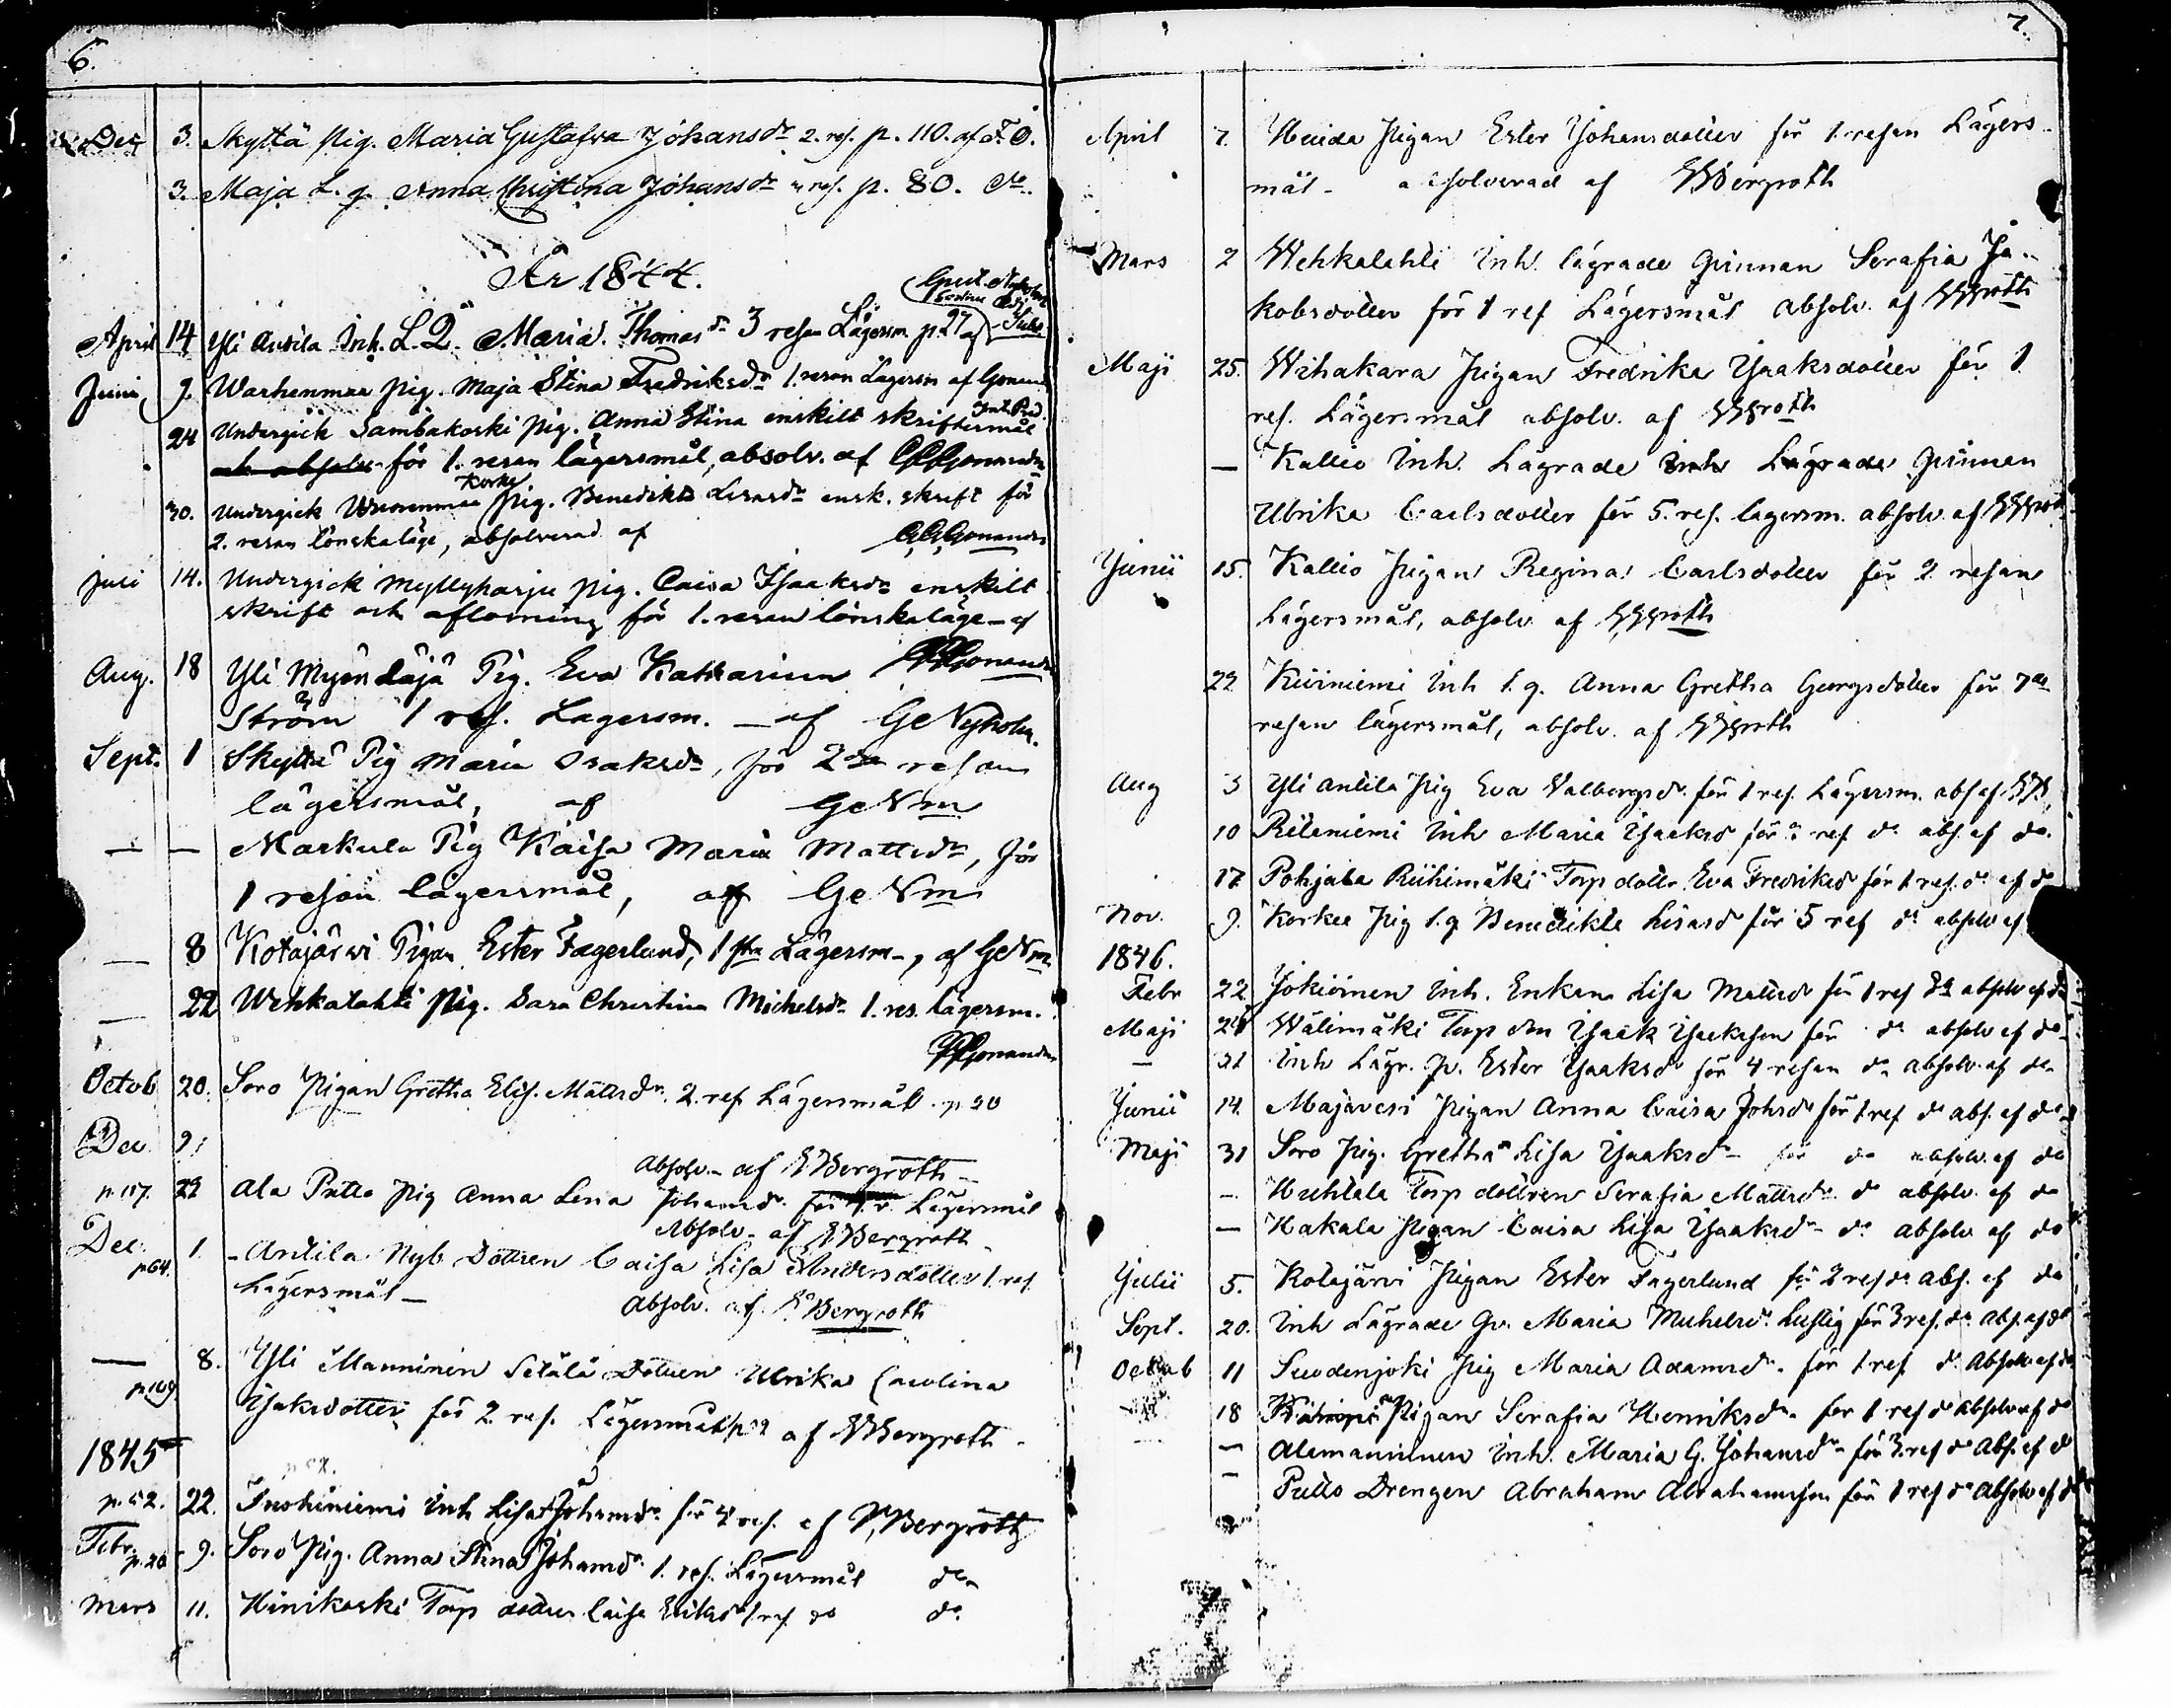 6.
Dec 3. Skyttä pig. Maria Gustafva Johansdr 2. res. p. 110. af F. O.
3. Maja L. q. Anna Christina Johansdr res. p. 80. do.
År 1844.
April 14 Yli Anttila Inh. L. Q. Maria Thomasdr 3 resan Lägersm. p. 27 af
Juni 9. Warhenmaa pig. Maja Stina Fredriksdr 1. resan Lägersm af Gonand
24 Undergick Sambakoski pig. Anna Stina enskilt skriftermål
för 1. resan lägersmål, absolv. af
Korke
30. Undergick pig. Benedikta Lisasdr ensk. skrift för
2. resan lönskaläge, absolverad af
Juli 14. Undergick Myllyharju pig. Caisa Isaaksdr enskilt
skrift och aflösning för 1. resan lönskaläge - af
Aug. 18 Yli Myöntäjä Pig. Eva Katharina
Ström 1 res. Lagersm. - af Ge Nyholm.
Sept. 1 Skyttä Pig Maria Isaksdr, för 2dra resan
lägersmål, af Ge Nm
— — Markula Pig Kaisa Maria Mattsdr, för
1 resan lägersmål, af Ge Nm
— 8 Kotajärwi Pigan Ester Fagerlund, 1sta Lägersm-, af Ge Nm
— 22 Wehkalahti Pig. Sara Christina Michelsdr 1. res. lägersm.
Octob 20. Soro Pigan Gretha Elis. Mattsdr. 2. res Lägersmål. p 90
Dec 9.
Absolv. af E Bergroth
p. 117. 22 Ala Putto Pig Anna Lena Johansdr. Lägersmål
Absolv. af E Bergroth
Dec. p 64. 1. Antila Nyb Dottren Caisa Lisa Andersdotter 1. res.
Lägersmål - Absolv. af E Bergroth
— p. 109 8. Yli Manninen Setälä Dottren Ulrika Carolina
Isaksdotter för 2. res. Lägersmål af E Bergroth
1845
p. 52. 22. Inh Lisa Johansdr för 4 res. af E Bergroth
Febr. p. 20 9. Soro Pig. Anna Stina Johansdr 1. res. Lägersmål do
Mars 11. Hinikoski Torp dottren Caisa Eriksdr 1 res. do do
7.
April 7. Huida Pigan Ester Johansdotter för 1. resan Lägers-
mål - absolverad af E Bergroth
Mars 2 Wehkalahti Inh. lägrade qvinnan Serafia Ja-
kobsdotter för 1 res Lägersmål absolv. af
Maji 25. Wihakara Pigan Fredrika Isaaksdotter för 1
res. Lägersmål absolv. af
— Kallio Inh. Lägrade Inh Lägrade qvinnan
Ulrika Carlsdotter för 5. res. lägersm. absolv. af
Junii 15. Kallio Pigan Regina Carlsdotter för 2 resan
Lägersmål, absolv. af
22 Kiviniemi Inh l. q. Anna Gretha Georgsdotter för 7de
resan lägersmål, absolv. af
Aug 3 Yli antila Pig Eva Walborgsdr. för 1 res. Lägersm. abs af
10 Inh Maria Isaaksd för res do abs. af do.
17 Pohjala Riihimäki Torp dottr. Eva Fredriksd för 1 res. do af do
Nov. 9. Korkee Pig l. q Benedikta Lisasd för 5 res do absolv af
1846.
Febr 22 Jokioinen Inh. Enkan Lisa Mattsd för 1 res do absolv af do
Maji 24 Wälimäki Torp son Isaak Isaaksson för do absolv af do
— 31 Inh Lägr. Qv. Ester Isaaksd för 4 resan do absolv. af do
Junii 14. Majavesi Pigan Anna Caisa Johsdr för 1 res do abs. af do
Maji 31 Soro Pig. Gretha Lisa Isaaksdr för do absolv. af do
— Huhtala Torp dottren Serafia Mattsdr. do absolv. af do
— Hakala Pigan Caisa Lisa Isaaksdr do absolv. af do
Julii 5. Kotajärvi Pigan Ester Fagerlund för 2 res do abs. af do
Sept. 20. Inh Lägrade Qv. Maria Michelsdr. Lustig för 3 res. do abs. af do
Octob 11 Suodenjoki Pig Maria Adamsdr. för 1 res. do Absolv af do
— 18 Pigan Serafia Henriksdr. för 1 res do Absolv af do
— Alamanninen Inh. Maria G. Johansdr för 3. res do Abs. af do
— Putto Drengen Abraham Abrahamsson för 1 res do Absolv af do